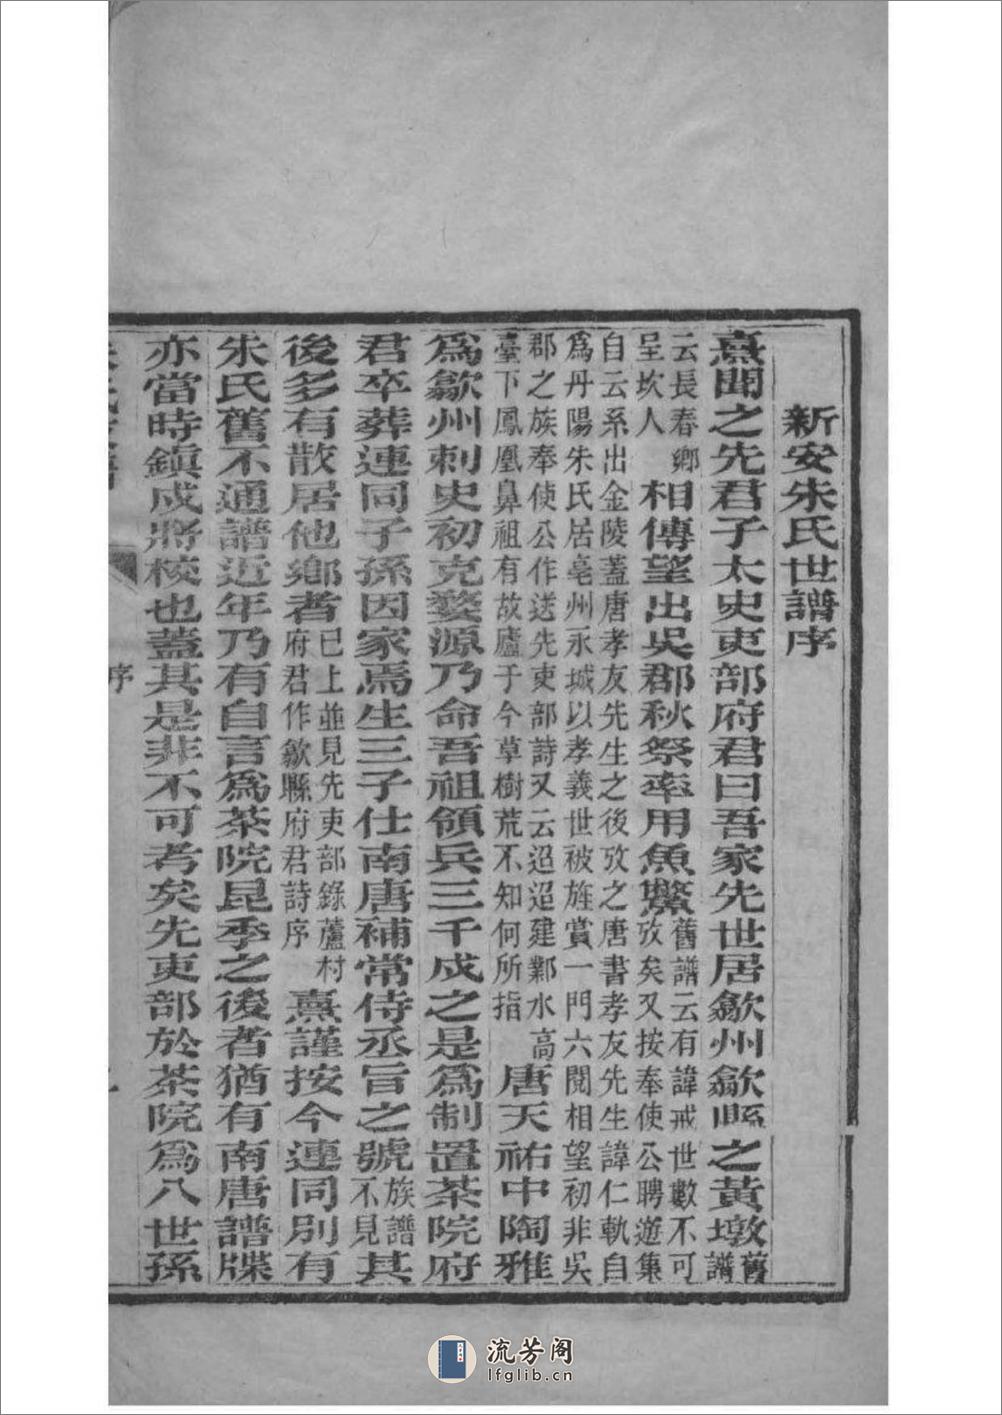 新安朱氏世譜序
熹聞之先君子太史吏部府君曰吾家先世居歙州歙縣之黃墩舊譜
云長春鄉呈坎人相傳望出吳郡秋祭率用魚鱉舊譜云有諱戒世數不可攷矣又按奉使公聘遊集
自云系出金陵蓋唐孝友先生之後攷之唐書孝友先生諱仁軌自
為丹陽朱氏居亳州永城以孝義世被旌賞一門六闕相望初非吳
郡之族奉使公作送先吏部詩又云迢迢建鄴水高臺下鳳凰鼻祖有故廬于今草樹荒不知何所指唐天祐中陶雅
爲歙州刺史初克婺源乃命吾祖領兵三千戍之是爲制置茶院府
君卒葬連同子孫因家焉生三子仕南唐補常侍丞旨之號族譜不見其
後多有散居他鄉者已上並見先吏部錄蘆村府君作歙縣府君詩序熹謹按今連同別有
朱氏舊不通譜近年乃有自言爲茶院昆季之後者猶有南唐譜牒
亦當時鎮戍將校也蓋其是非不可考矣先吏部於茶院爲八世孫
序
流芳阁
lfglib.cn